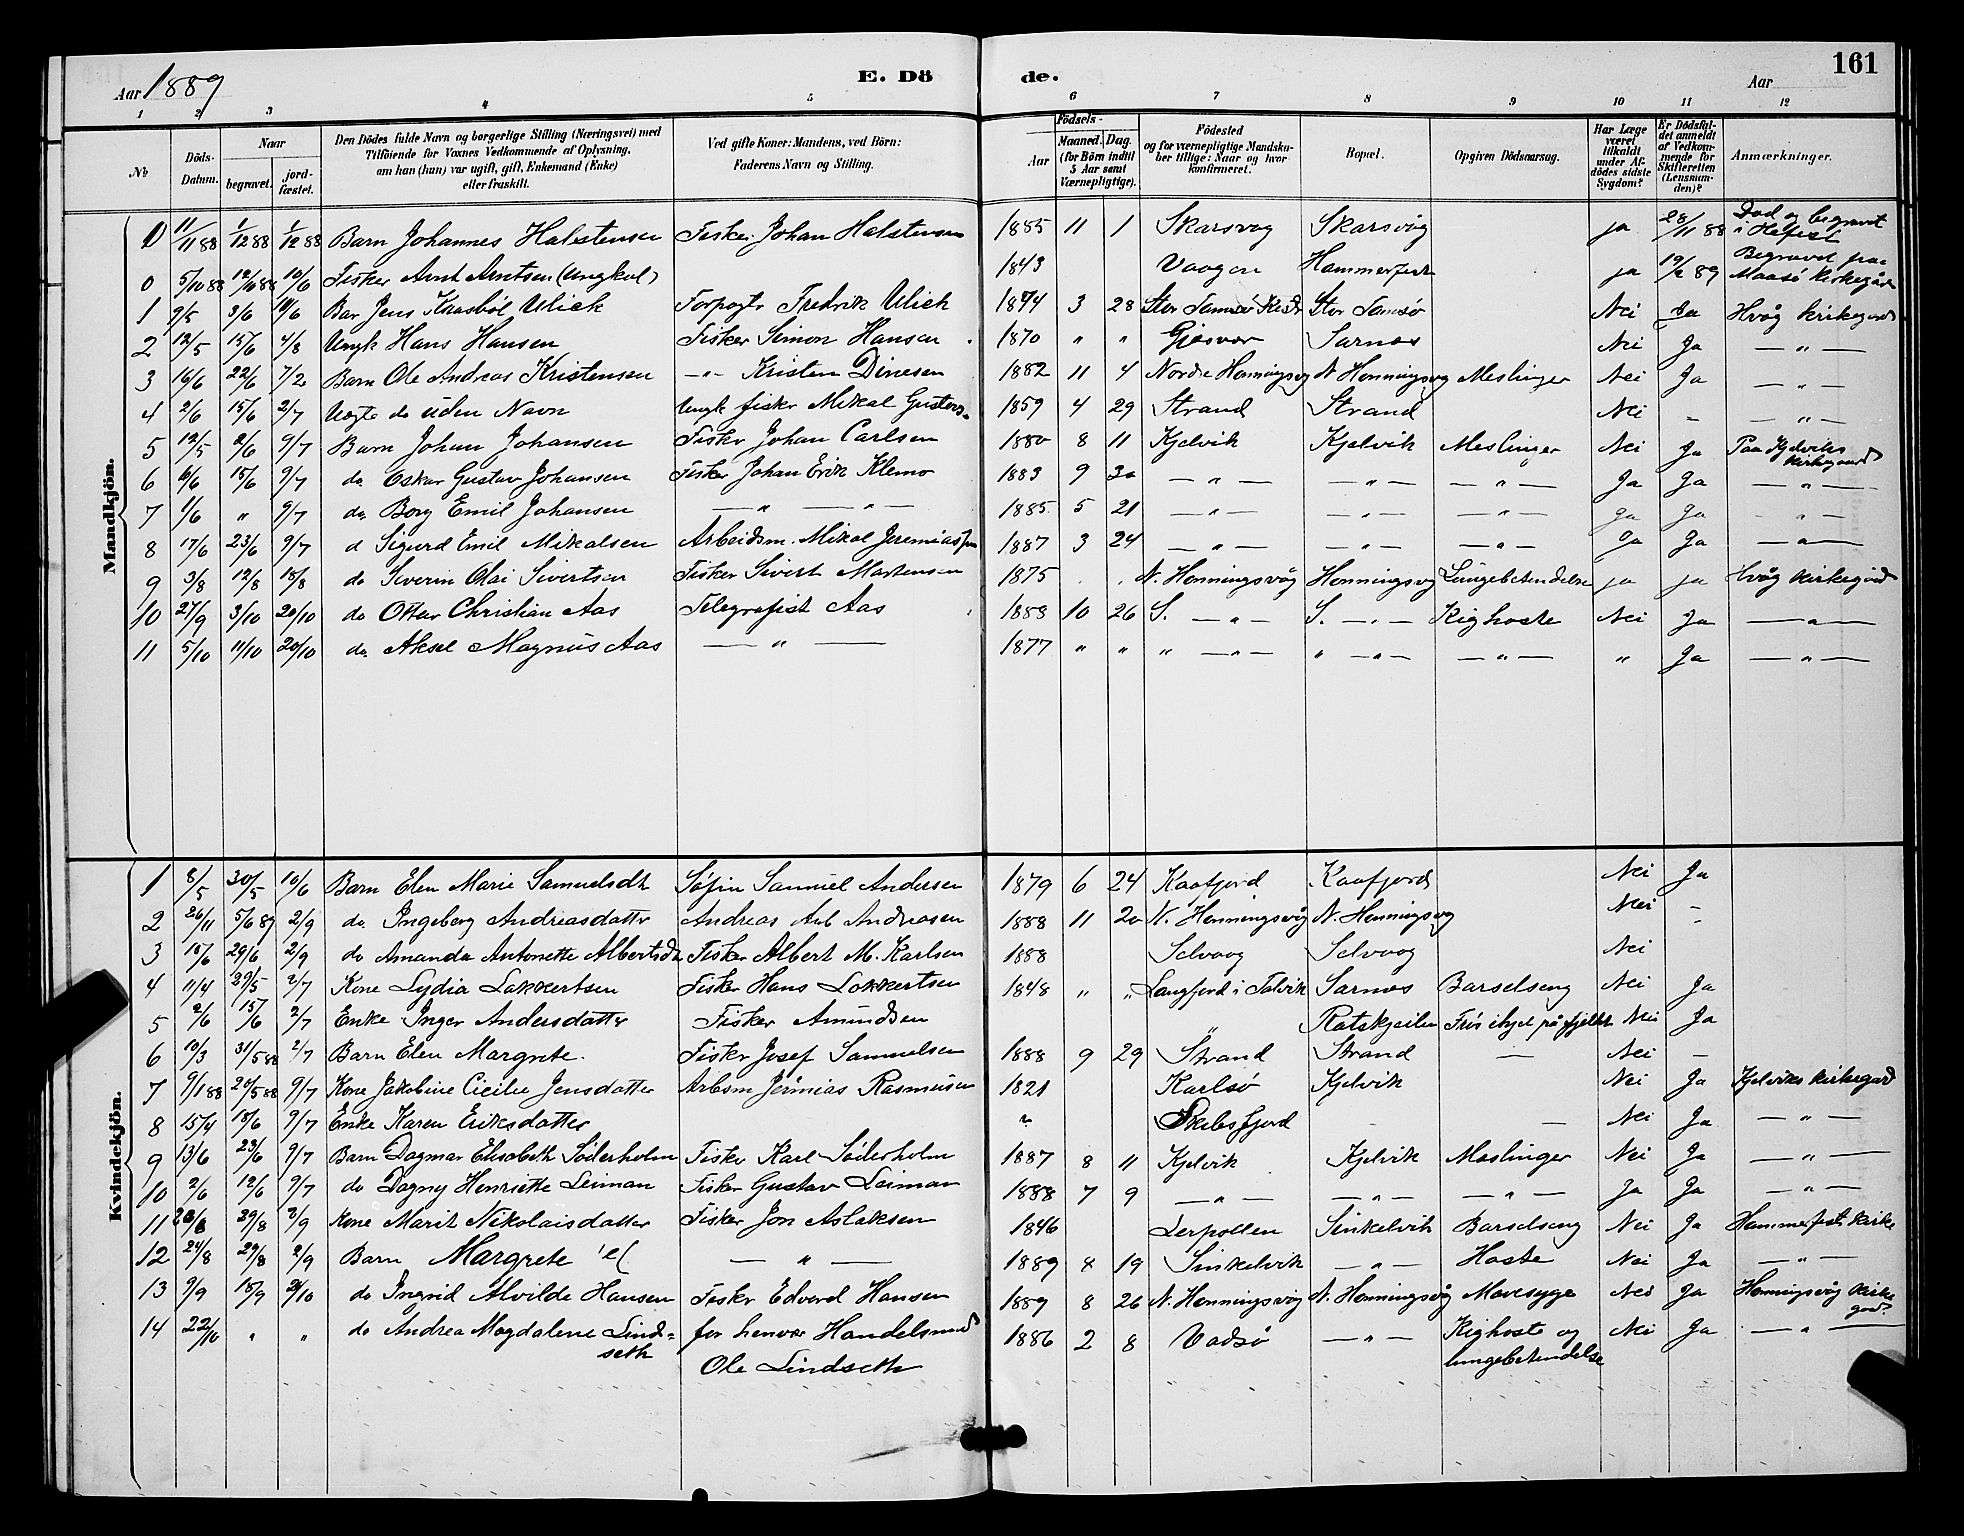 161
Aar 1889 E. Dö de. Aar
1 2 3 4 5 6 7 8 9 10 11 12
№ Döds-Datum. Naar begravet. jordfæstet. Den Dödes fulde Navn og borgerlige Stilling (Næringsvei) med Tilföiende for Voxnes Vedkommende af Oplysning, om han (hun) var ugift, gift, Enkemand (Enke) eller fraskilt. Ved gifte Koner: Mandens, ved Börn: Faderens Navn og Stilling. Födsels- Aar Maaned. Dag. (for Börn indtil 5 Aar samt Værnepligtige). Födested og for værnepligtige Mandskaber tillige: Naar og hvor konfirmeret. Bopæl. Opgiven Dödsaarsag. Har Læge været tilkaldt under Afdödes sidste Sygdom? Er Dödsfaldet anmeldt af Vedkommende for Skifteretten (Lensmanden)? Anmærkninger.
Mandkjön.
0 11/11 88 1/12 88 1/12 88 Barn Johannes Halstensen Fisker Johan Halstensen 1885 11 1 Skarsvog Skarsvog ja 28/11 88 Død og begravet i Hafest
0 5/10 88 12/10 88 10/6 Fisker Arnt Arntsen (Ungkal) 1843 Vaagen Hammerfest ja 19/2 89 Begravd paa Maasø Kirkegård
1 9/5 3/6 10/6 Bar Jens Knasböl Ulick Forpagter Fredrik Ulick 1874 3 28 Stor Tamsø Kistr Stor Tamsø Nei Ja Hvåg kirkegard
2 12/5 15/6 4/8 Ungk Hans Hansen Fisker Simon Hansen 1870 " " Gjesvær Sarnes Nei Ja — " —
3 16/6 22/6 7/2 Barn Ole Andreas Kristensen — " — Kristen Dinesen 1882 11 4 Nordre Honningsvg N Honningsvg Meslinger Nei Ja — " —
4 2/6 15/6 2/7 Uægte do uden Navn Ungk fisker Mikal Gustavs. 1859 4 29 Strand Strand Nei - — " —
5 12/5 2/6 9/7 Barn Johan Johansen Fisker Johan Carlsen 1880 8 11 Kjelvik Kjelvik Meslinger Nei Ja Paa Kjelviks kirkegaard
6 6/6 15/6 9/7 do Oskar Gustav Johansen Fisker Johan Erik Klemo 1883 9 30 — " — — " — — " — Ja Ja — " —
7 1/6 " 9/7 do Borg Emil Johansen — " — — " — 1885 5 21 — " — — " — — " — Ja Ja — " —
8 17/6 23/6 9/7 d Sigurd Emil Mikalsen Arbeidsm. Mikal Jeremiassen 1887 3 24 — " — — " — — " — Ja Ja — " —
9 3/8 12/8 18/8 do Severin Olai Sivertsen Fisker Sivert Martensen 1875 . . N. Honningsvåg Honningsvg Lungebetendelse ja ja Hvåg kirkegård
10 27/9 3/10 20/10 do Ottar Christian Aas Telegrafist Aas 1888 10 26 S. — " — S. — " — Kighoste Nei Ja — " —
11 5/10 11/10 20/10 do Aksel Magnus Aas — " — 1877 " " " — " — " — " — — " — " Ja — " —
Kvindekjön.
1 8/5 30/5 10/6 Barn Elen Marie Samuelsdt Søfin Samuel Andersen 1879 6 24 Kaafjord Kaafjord Nei Ja
2 26/11 5/6 89 2/9 do Ingeborg Andreasdatter Andreas Arb Andreasen 1888 11 20 N. Honningsvåg N. Honningsvg Nei -
3 15/6 29/6 2/9 do Amanda Antonette Albertsdt Fisker Albert M. Karlsen 1888 Selvaag Selvaag Nei
4 11/4 29/5 2/7 Kone Lydia Lokkertsen Fisker Hans Lokkertsen 1848 " " Langfjord i Talvik Sarnes Barselseng Nei Ja
5 2/6 15/6 2/7 Enke Inger Andersdatter Fisker Amundsen " Ratskjeilen Frøs ihjel på fjeldet Nei Ja
6 10/3 31/5 88 2/7 Barn Elen Margrete. Fisker Josef Samuelsen 1888 9 29 Strand Strand — Nei -
7 9/1 88 20/5 88 9/7 Kone Jakobine Cicilie Jensdatter Arbsm Jermias Rasmusen 1821 Karlsø Kjelvik Nei Ja Kjelviks kirkegard
8 15/4 18/6 9/7 Enke Karen Eriksdatter " Skibsfjord — Nei Ja — " —
9 13/6 23/6 9/7 Barn Dagmar Elisabeth Söderholm Fisker Karl Söderholm 1887 8 11 Kjelvik Kjelvik Meslinger Nei Ja — " —
10 2/6 12/6 9/7 do Dagny Henriette Leiman Fisker Gustav Leiman 1888 7 9 — " — — " — — " — Ja Ja — " —
11 29/8 2/9 Kone Marit Nikolaisdatter Fisker Jon Aslaksen 1846 Lerpollen Sinkelvik Barselseng Nei Ja Hammerfest kirke
12 24/8 29/8 2/9 Barn Margrete — " — 1889 8 19 Sinkelvik — " — Hoste Nei Ja — " —
13 9/9 18/9 do Ingrid Alvilde Hansen Fisker Edvard Hansen 1889 8 26 N. Honningsvåg N. Honningsvåg Mavesyge Nei Ja Honningsvåg kirkegard.
14 22/10 " " do Andrea Magdalene Lindseth for henvær Handelsmand Ole Lindseth 1886 2 8 Vadsø — " — Kighoste og lungebetendelse Nei Ja — " —